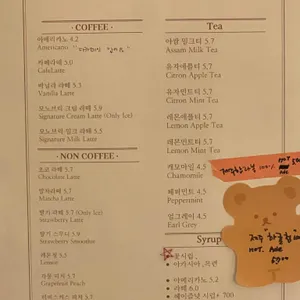 COFFEE
아메리카노 4.2
Americano
카페라떼 5.0
CafeLatte
바닐라 라떼 5.3
Vanilla Latte
모노브의 크림 라떼 5.9
Signature Cream Latte (Only Ice)
모노브의 밀크 라떼 5.5
Signature Milk Latte
NON COFFEE
초코 라떼 5.7
Chocolate Latte
말차라떼 5.7
Matcha Latte
딸기 라떼 5.7 (Only Ice)
Strawberry Latte
딸기 스무디 5.9
Strawberry Smoother
레몬청 5.5
Lemon
자몽 피치 5.7
Grapefruit Peach
Tea
아쌈 밀크티 5.7
Assam Milk Tea
유자애플티 5.7
Citron Apple Tea
유자민트티 5.7
Citron Mint Tea
레몬애플티 5.7
Lemon Apple Tea
레몬민트티 5.7
Lemon Mint Tea
캐모마일 4.5
Chamomile
페퍼민트 4.5
Peppermint
얼그레이 4.5
Earl Grey
Syrup
꽃시럽
아카시아
아메리카노 5.2
라떼 6.0
700
100% HOT
제주 한라봉
HOT. ADE